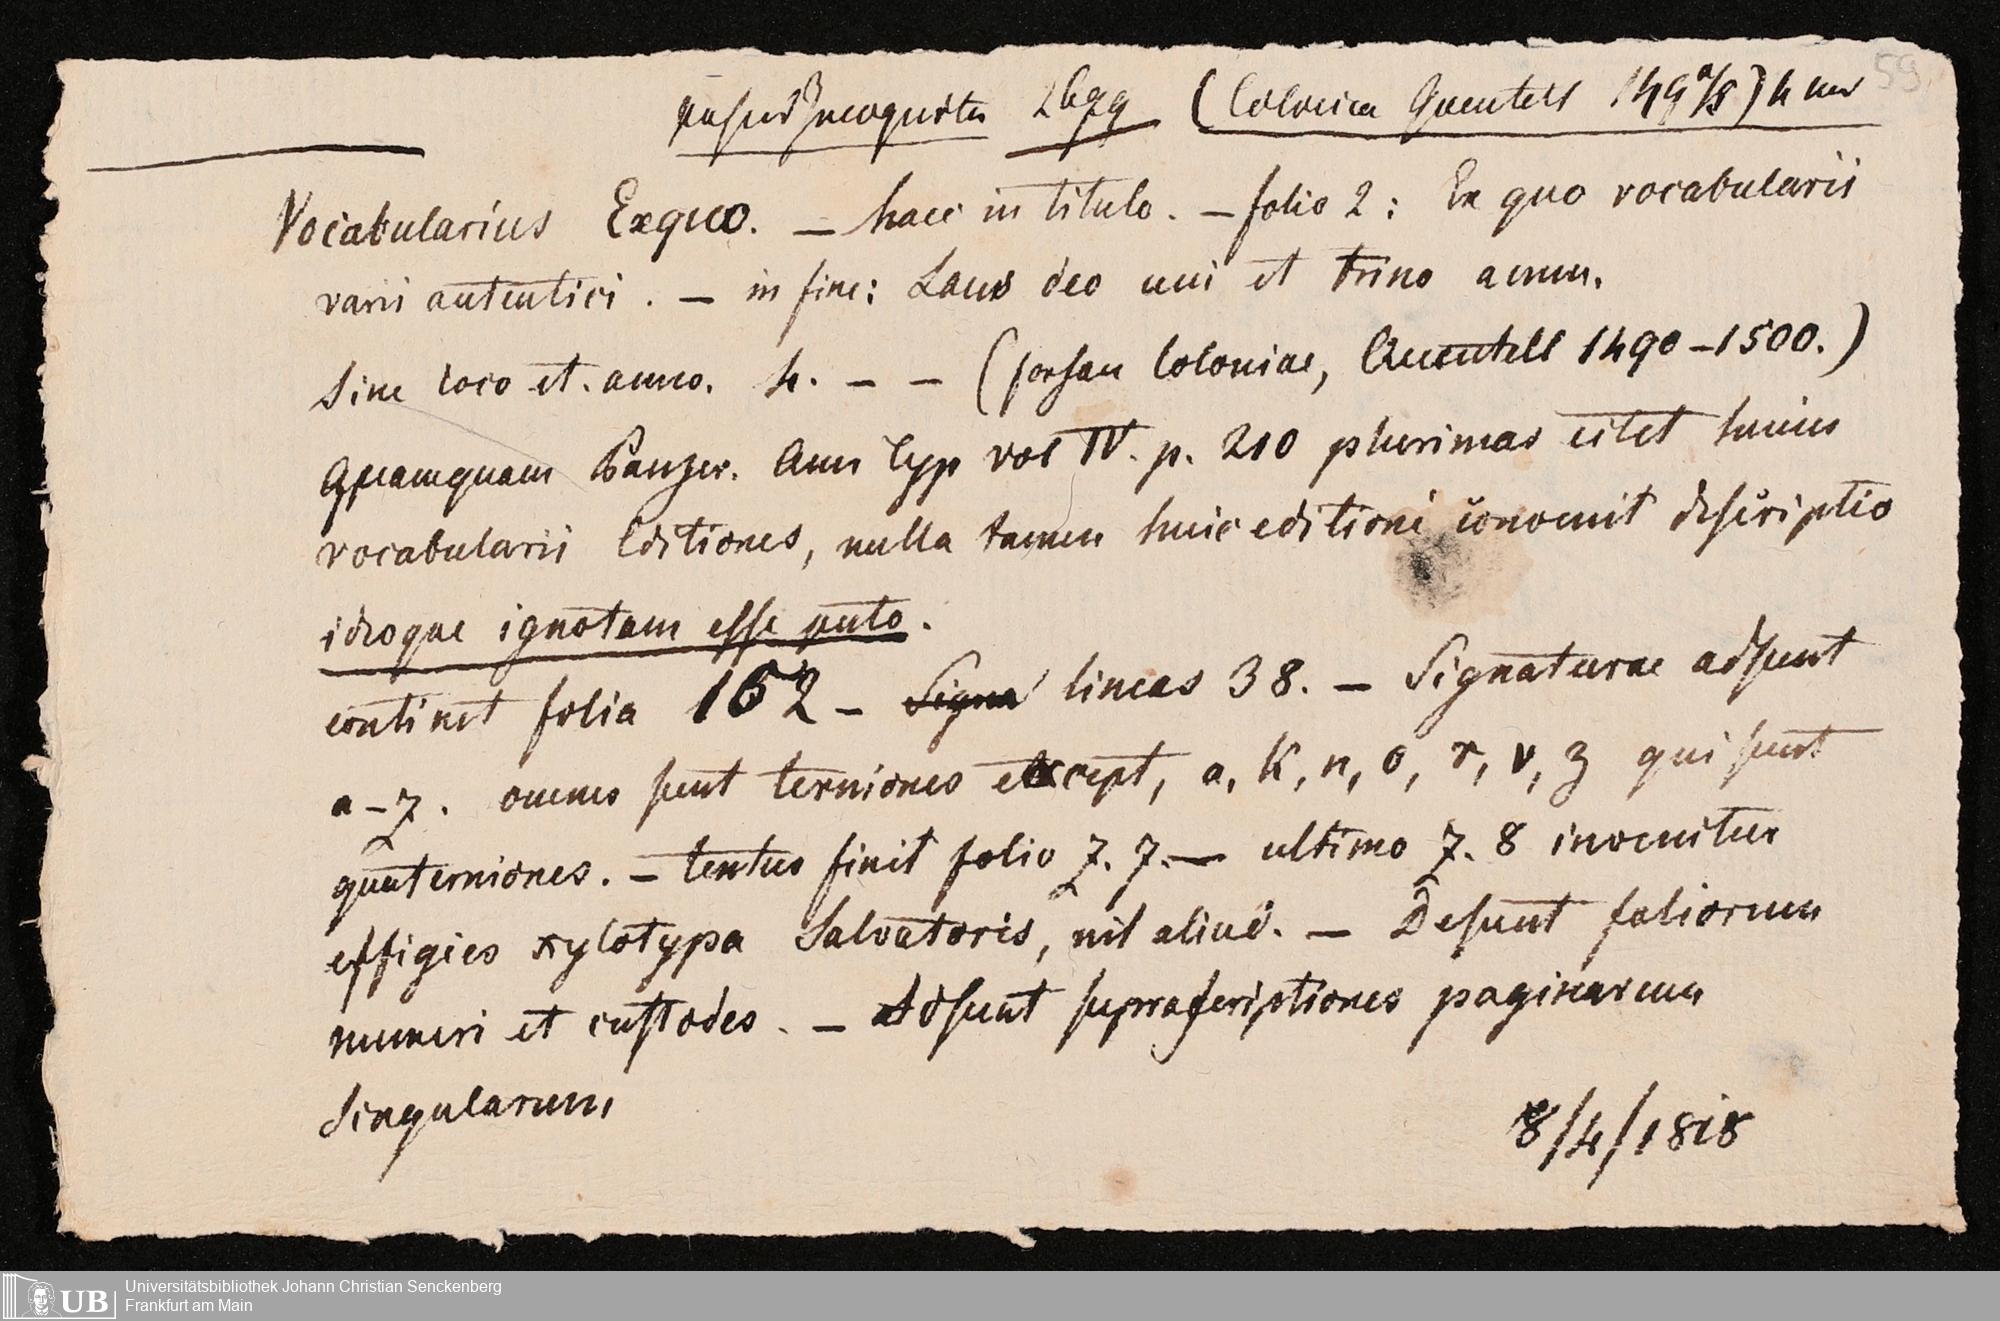 59
(Colonia Quentell
Vocabularius Exquo. – haec in titulo. – folio 2: Ex quo vocabularii
varii autentici. – in fine: Laus deo uni et trino amen.
Sine loco et anno. 4. – – (forsan Coloniae, Quentell 1490–1500.)
Quamquam Panzer. Ann Typ vol IV. p. 210 plurimas citet huius
vocabularii Editiones, nulla tamen huic editioni convenit descriptio
ideoque ignotam esse puto.
continet folia 152 – Signa lineas 38. – Signaturae adsunt
a–z. omnes sunt terniones except, a, k, n, o, r, v, z qui sunt
quaterniones. – textus finit folio z. 7. – ultimo z. 8 invenitur
effigies xylotypa Salvatoris, nil aliud. – Desunt foliorum
numeri et custodes. – Adsunt suprascriptiones paginarum
singularum,
8/4/1818
UB
Universitätsbibliothek Johann Christian Senckenberg
Frankfurt am Main